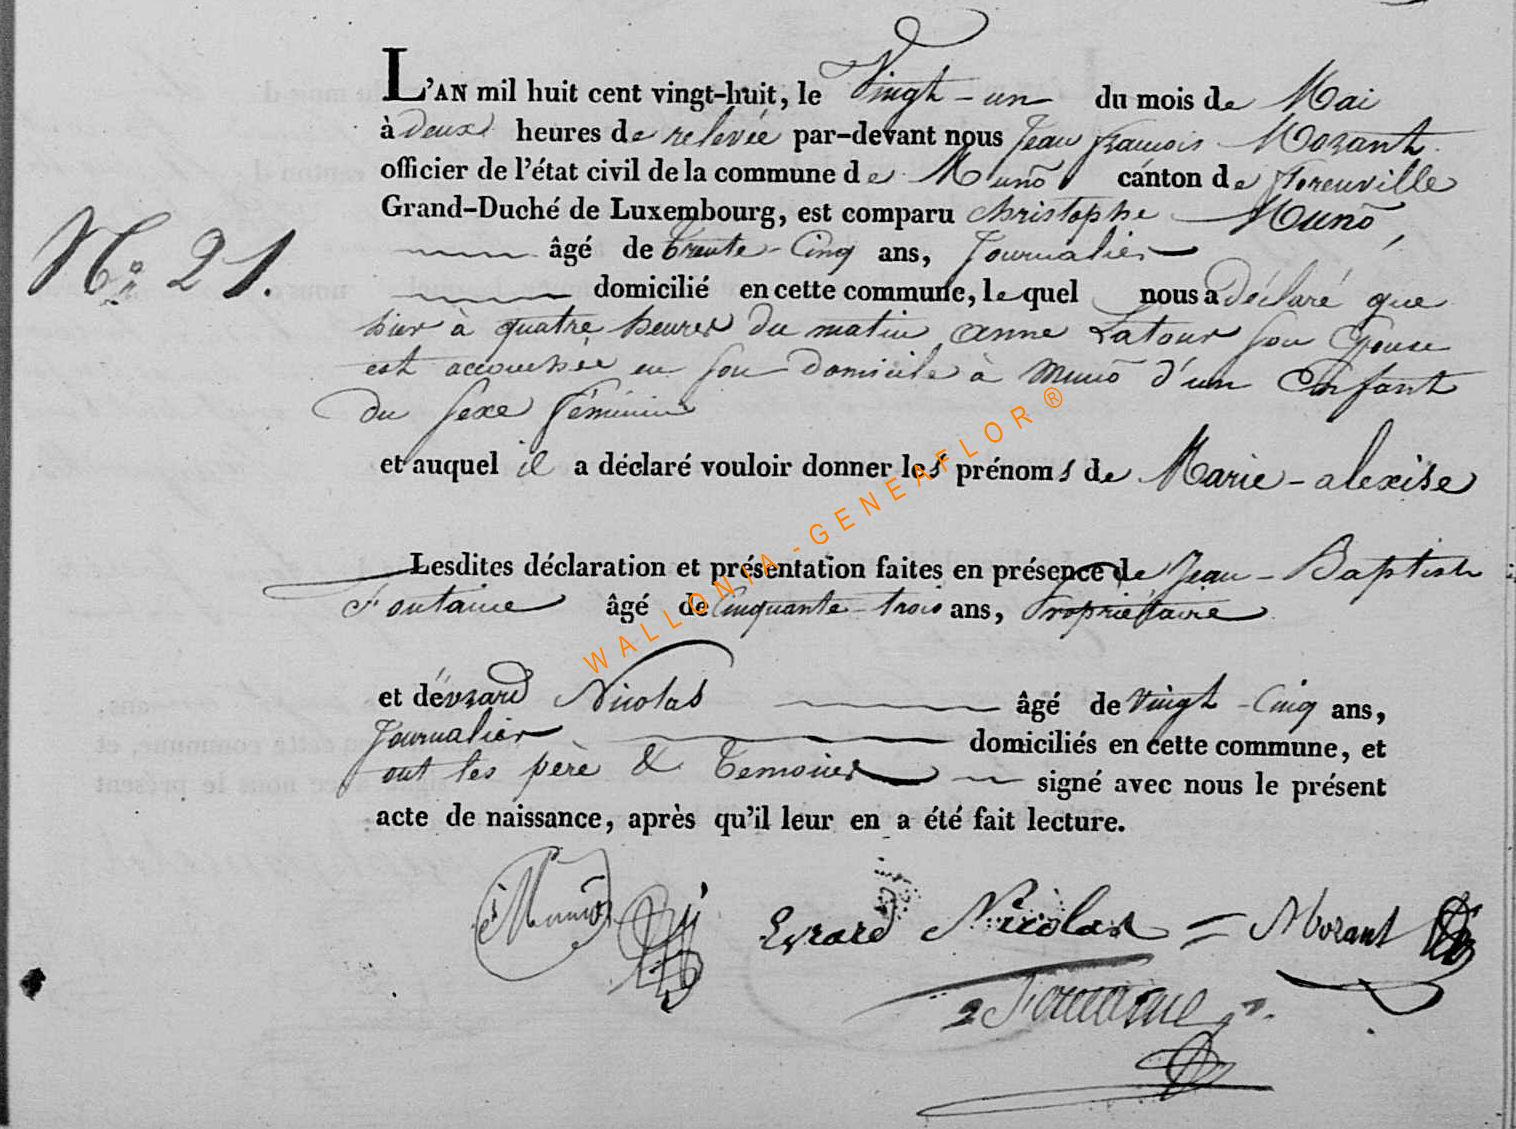 L'AN mil huit cent vingt-huit, le Vingt-un du mois de Mai
à deux heures de relevée par-devant nous Jean françois Mozant
officier de l'état civil de la commune de Munõ canton de florenville
Grand-Duché de Luxembourg, est comparu christophe Munõ,
Nº 21.
âgé de trente-Cinq ans, Journalier
domicilié en cette commune, le quel nous a déclaré que
hier à quatre heures du matin anne Latour son Epouse
est accouchée en son domicile à Munõ d'un Enfant
du sexe féminin
et auquel il a déclaré vouloir donner les prénoms de Marie-alexise
Lesdites déclaration et présentation faites en présence de Jean-Baptiste
Fontaine âgé de Cinquante-trois ans, Propriétaire
et d'évrard Nicolas âgé de vingt-Cinq ans,
Journalier domiciliés en cette commune, et
ont les père & temoins signé avec nous le présent
acte de naissance, après qu'il leur en a été fait lecture.
Munõ Evrard Nicolas = Mozant
Fontaine
WALLONIA-GENEAFLOR®